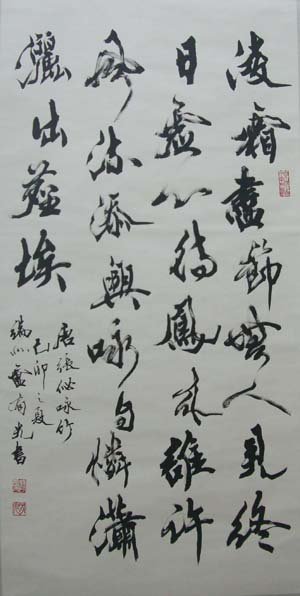 凌霜盡節無人見終
日虛心待鳳来誰許
風流添興咏自憐瀟
灑出塵埃
唐張佖咏竹
己卯之夏
端州盧有光書